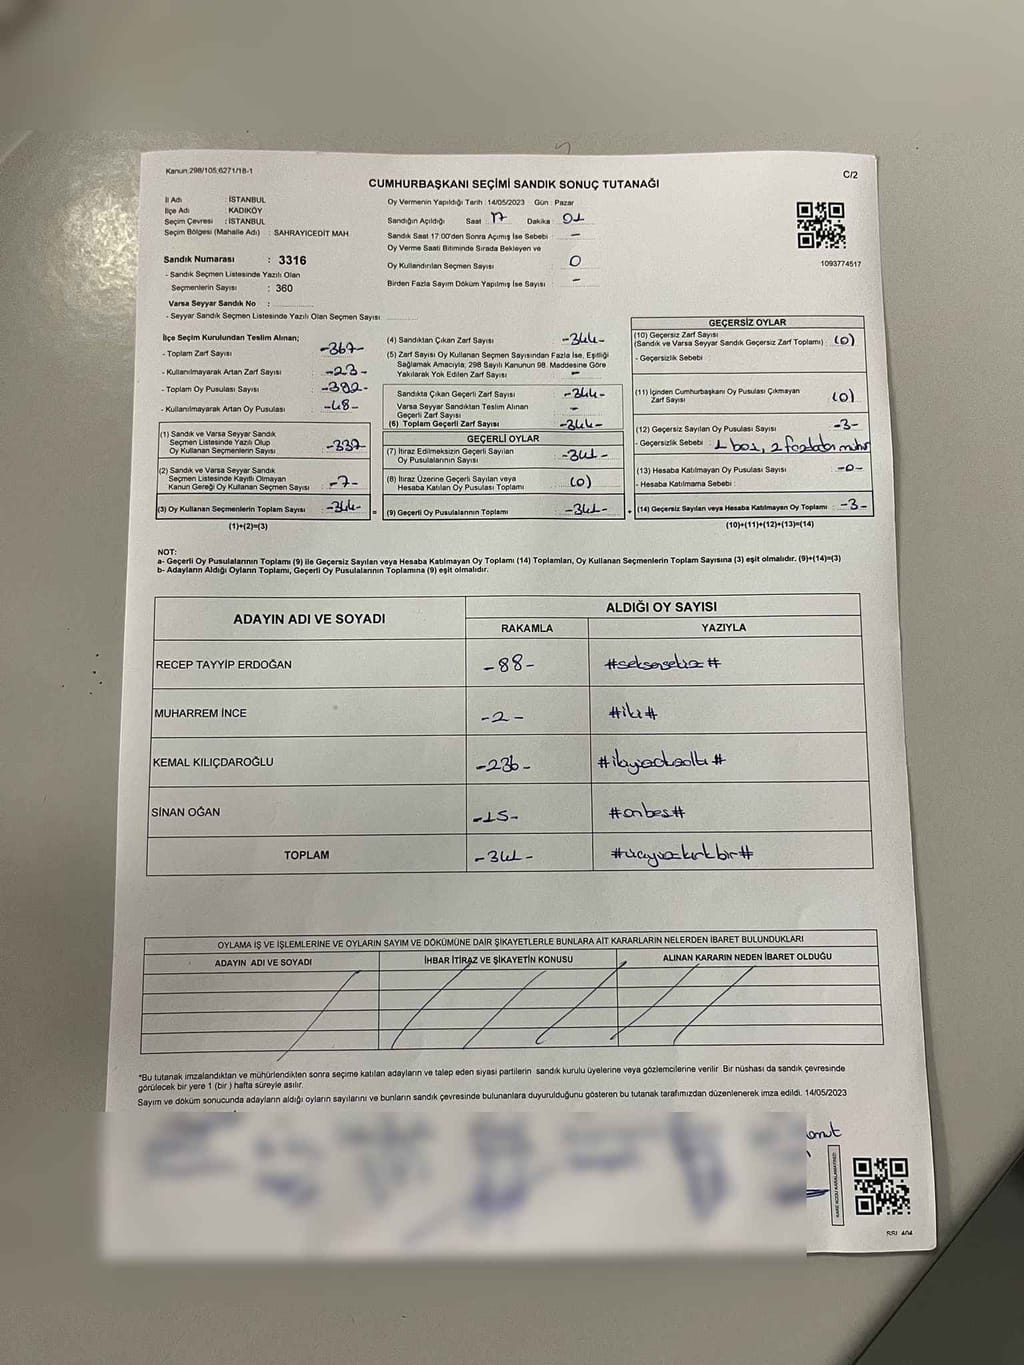 Kanun:298/105,6271/18-1
C/2
CUMHURBAŞKANI SEÇİMİ SANDIK SONUÇ TUTANAĞI
İl Adı : İSTANBUL
İlçe Adı : KADIKÖY
Seçim Çevresi : İSTANBUL
Seçim Bölgesi (Mahalle Adı) : SAHRAYICEDİT MAH.
Sandık Numarası : 3316
- Sandık Seçmen Listesinde Yazılı Olan
Seçmenlerin Sayısı : 360
Varsa Seyyar Sandık No :
- Seyyar Sandık Seçmen Listesinde Yazılı Olan Seçmen Sayısı
Oy Vermenin Yapıldığı Tarih : 14/05/2023 Gün : Pazar
Sandığın Açıldığı Saat : 17 Dakika : 01
Sandık Saat 17.00'den Sonra Açımış İse Sebebi : -
Oy Verme Saati Bitiminde Sırada Bekleyen ve
Oy Kullandırılan Seçmen Sayısı : 0
Birden Fazla Sayım Döküm Yapılmış İse Sayısı : -
1093774517
İlçe Seçim Kurulundan Teslim Alınan;
- Toplam Zarf Sayısı -367-
- Kullanılmayarak Artan Zarf Sayısı -23-
- Toplam Oy Pusulası Sayısı -392-
- Kullanılmayarak Artan Oy Pusulası -48-
(1) Sandık ve Varsa Seyyar Sandık
Seçmen Listesinde Yazılı Olup
Oy Kullanan Seçmenlerin Sayısı -337-
(2) Sandık ve Varsa Seyyar Sandık
Seçmen Listesinde Kayıtlı Olmayan
Kanun Gereği Oy Kullanan Seçmen Sayısı -7-
(3) Oy Kullanan Seçmenlerin Toplam Sayısı -344- =
(1)+(2)=(3)
(4) Sandıktan Çıkan Zarf Sayısı -344-
(5) Zarf Sayısı Oy Kullanan Seçmen Sayısından Fazla İse, Eşitliği
Sağlamak Amacıyla, 298 Sayılı Kanunun 98. Maddesine Göre
Yakılarak Yok Edilen Zarf Sayısı -
Sandıkta Çıkan Geçerli Zarf Sayısı -344-
Varsa Seyyar Sandıktan Teslim Alınan
Geçerli Zarf Sayısı -
(6) Toplam Geçerli Zarf Sayısı -344-
GEÇERLİ OYLAR
(7) İtiraz Edilmeksizin Geçerli Sayılan
Oy Pusulalarının Sayısı -341-
(8) İtiraz Üzerine Geçerli Sayılan veya
Hesaba Katılan Oy Pusulası Toplamı (0)
(9) Geçerli Oy Pusulalarının Toplamı -341- +
GEÇERSİZ OYLAR
(10) Geçersiz Zarf Sayısı
(Sandık ve Varsa Seyyar Sandık Geçersiz Zarf Toplamı) (0)
- Geçersizlik Sebebi
(11) İçinden Cumhurbaşkanı Oy Pusulası Çıkmayan
Zarf Sayısı (0)
(12) Geçersiz Sayılan Oy Pusulası Sayısı -3-
- Geçersizlik Sebebi : 1 boş, 2 fazladan mühür
(13) Hesaba Katılmayan Oy Pusulası Sayısı -0-
- Hesaba Katılmama Sebebi :
(14) Geçersiz Sayılan veya Hesaba Katılmayan Oy Toplamı : -3-
(10)+(11)+(12)+(13)=(14)
NOT:
a- Geçerli Oy Pusulalarının Toplamı (9) ile Geçersiz Sayılan veya Hesaba Katılmayan Oy Toplamı (14) Toplamları, Oy Kullanan Seçmenlerin Toplam Sayısına (3) eşit olmalıdır. (9)+(14)=(3)
b- Adayların Aldığı Oyların Toplamı, Geçerli Oy Pusulalarının Toplamına (9) eşit olmalıdır.
ADAYIN ADI VE SOYADI
ALDIĞI OY SAYISI
RAKAMLA YAZIYLA
RECEP TAYYİP ERDOĞAN -88- #seksensekiz#
MUHARREM İNCE -2- #iki#
KEMAL KILIÇDAROĞLU -236- #ikiyüzotuzaltı#
SİNAN OĞAN -15- #onbeş#
TOPLAM -341- #üçyüzkırkbir#
OYLAMA İŞ VE İŞLEMLERİNE VE OYLARIN SAYIM VE DÖKÜMÜNE DAİR ŞİKAYETLERLE BUNLARA AİT KARARLARIN NELERDEN İBARET BULUNDUKLARI
ADAYIN ADI VE SOYADI İHBAR İTİRAZ VE ŞİKAYETİN KONUSU ALINAN KARARIN NEDEN İBARET OLDUĞU
*Bu tutanak imzalandıktan ve mühürlendikten sonra seçime katılan adayların ve talep eden siyasi partilerin sandık kurulu üyelerine veya gözlemcilerine verilir. Bir nüshası da sandık çevresinde
görülecek bir yere 1 (bir ) hafta süreyle asılır.
Sayım ve döküm sonucunda adayların aldığı oyların sayılarını ve bunların sandık çevresinde bulunanlara duyurulduğunu gösteren bu tutanak tarafımızdan düzenlenerek imza edildi. 14/05/2023
KARE KODU KARALAMAYINIZ!